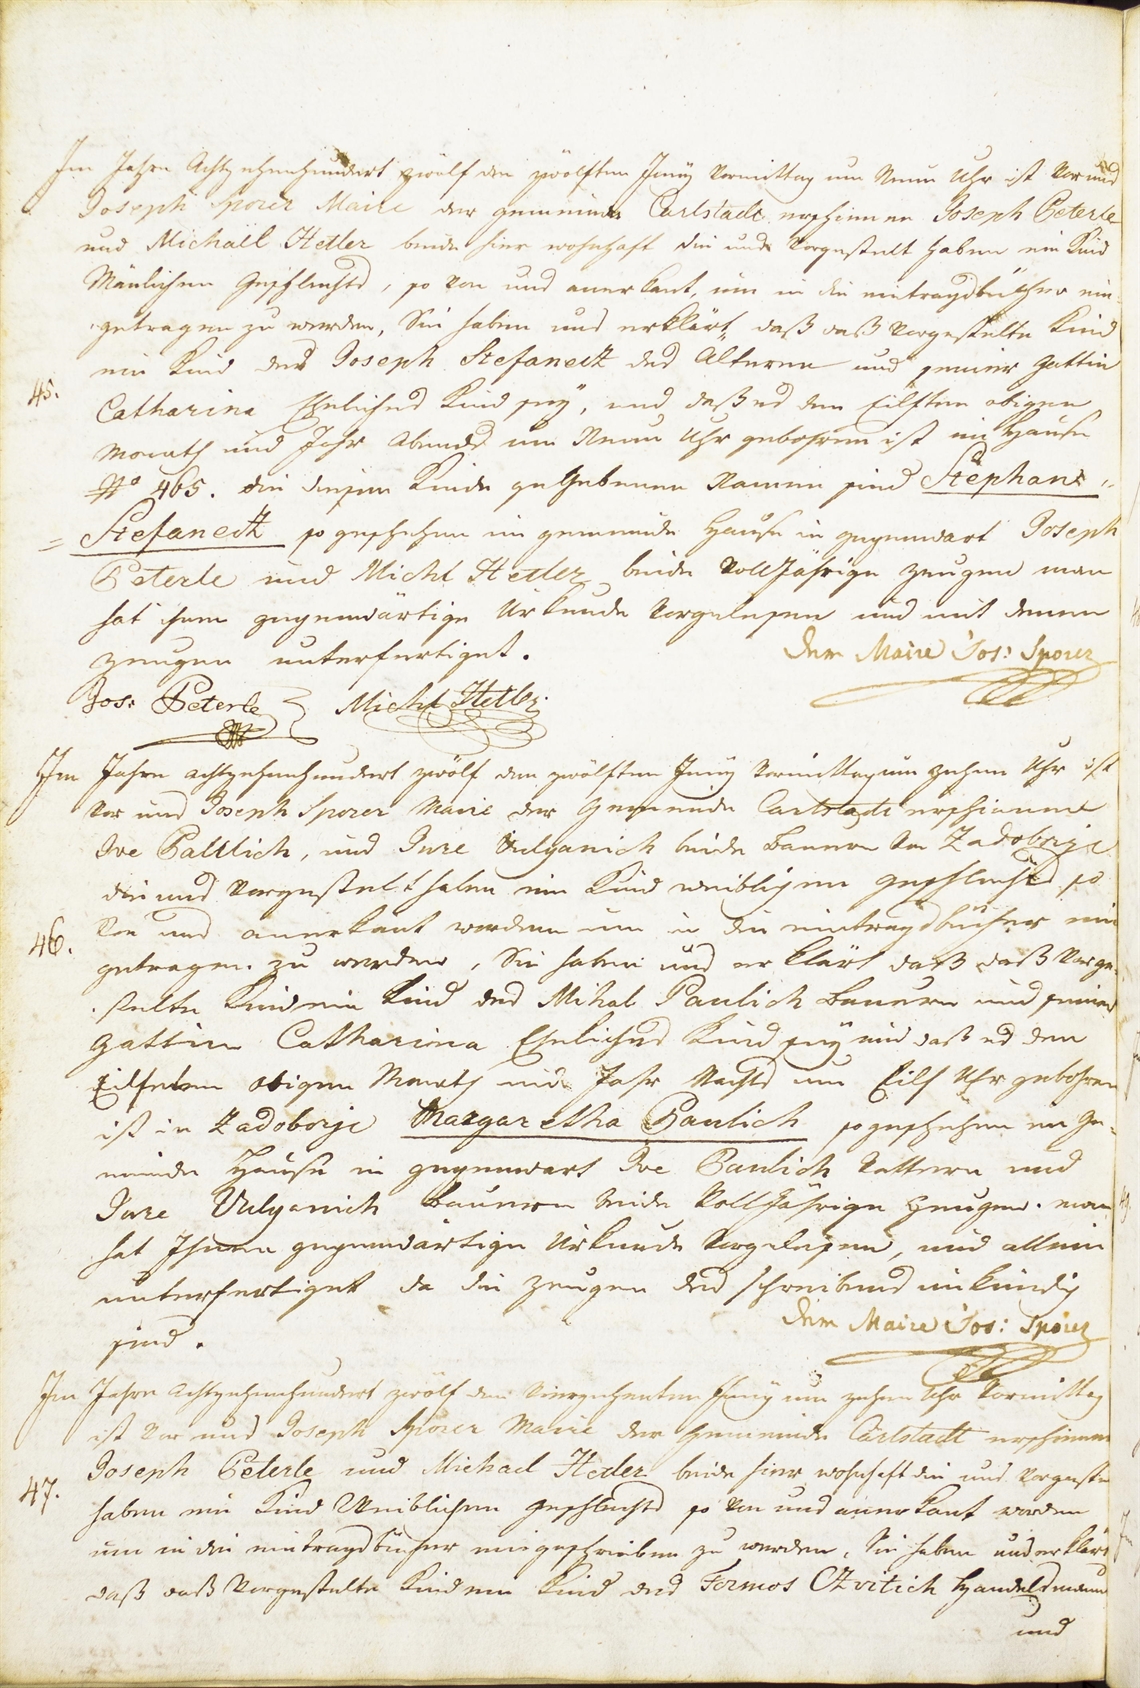 Im Jahre Achtzehenhundert zwölf den zwölften Juny Vormittag um Neun Uhr ist Vor uns
Joseph Sporer Maire der gemeinde Carlstadt erschienen Joseph Peterle
und Michäel Hetler beide hier wohnhaft die uns Vorgestelt haben ein Kind
Mänlichen Geschlechts, so von uns anerkant, um in die eintragsbücher ein-
getragen zu werden, Sie haben uns erklärt, daß daß Vorgestelte Kind
ein Kind des Joseph Stefaneck des Älteren und seiner gattin
45.
Catharina Eheliches Kind sey, und daß es den Eilften obigen
Monath und Jahr Abends um Neun Uhr gebohren ist im Hause
No 465. die diesem Kinde gegebenen Namen sind Stephans
= Stefaneck so geschehen im gemeinde Hause in gegenwart Joseph
Peterle und Michl Hetler beide VollJährige zeugen man
hat ihnen gegenwärtige Urkunde Vorgelesen und mit denen
zeugen unterfertiget.
Der Maire Jos: Sporer
Jos: Peterle Michl Hetler
Im Jahre achtzehenhundert zwölf den zwölften Juny Vormittag um zehen Uhr ist
Vor uns Joseph Sporer Maire der Gemeinde Carlstadt erschienen
Ive Paulich, und Jure Vulyanich beide Bauern von Zadoborje
die uns Vorgestelt haben ein Kind weiblichen geschlechts so
46.
Von uns anerkant worden um in die eintragsbücher ein
getragen zu werden, Sie haben uns erklärt daß daß Vorge-
stelte Kind ein Kind des Mihal Paulich Bauern und seiner
gattin Catharina Eheliches Kind sey und daß es den
Eilften obigen Monath und Jahr Nachts um Eilf Uhr gebohren
ist in Zadoborje Margaretha Paulich so geschehen im Ge-
meinde Hause in gegenwart Ive Paulich Vattern und
Jure Vulyanich Bauern beide VollJährige Zeugen. man
hat Ihnen gegenwärtige Urkunde Vorgelesen, und allein
unterfertiget da die zeugen des schreibens unkündig
sind.
Der Maire Jos: Sporer
Im Jahre Achtzehenhundert zwölf den Vierzehenten Juny um zehen Uhr Vormittag
ist Vor uns Joseph Sporer Maire der Gemeinde Carlstadt erschienen
Joseph Peterle und Michael Hetler beide hier wohnhaft die uns Vorgestelt
47.
haben ein Kind Weiblichen geschlechts so von uns anerkant worden
um in die eintragsbücher eingeschrieben zu werden, Sie haben uns erklärt
daß daß Vorgestelte Kind ein Kind des Formos Czvitich Handelsmann
und